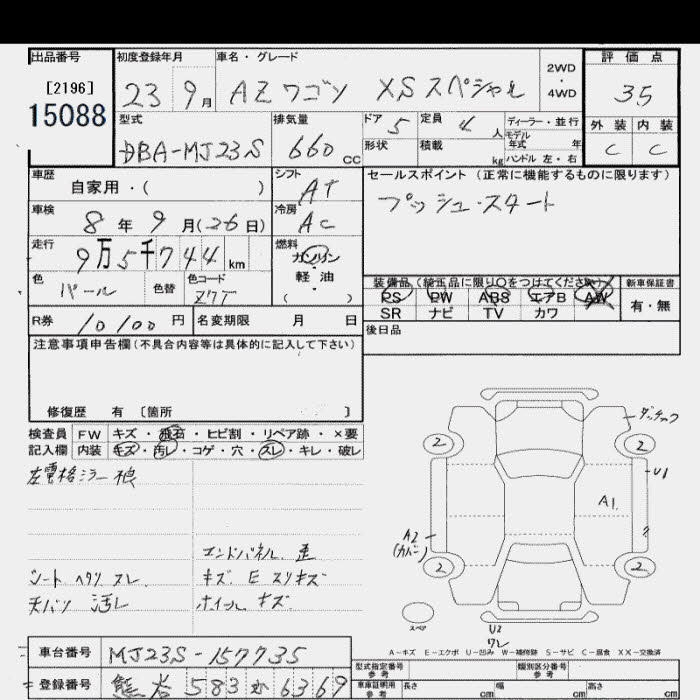 出品番号 初度登録年月 車名・グレード 評価点
[2196]
15088
23 9月 AZワゴン XSスペシャル 2WD・4WD 3.5
型式 排気量 ドア 5 定員 4人 ディーラー・並行 外装 内装
DBA-MJ23S 660cc 形状 積載 kg モデル年式 年 ハンドル 左・右 C C
車歴 シフト セールスポイント (正常に機能するものに限ります)
自家用・( ) AT プッシュ・スタート
車検 8年 9月(26日) 冷房 AC
走行 9万5千744km 燃料 ガソリン・軽油 ( )
色 パール 色替 色コード Z7T
装備品 (純正品に限り○をつけてください) 新車保証書
PS PW ABS エアB AW 有・無
SR ナビ TV カワ
R券 10100円 名変期限 月 日 後日品
注意事項申告欄(不具合内容等は具体的に記入して下さい)
修復歴 有 〔箇所 〕
検査員 FW キズ・飛石・ヒビ割・リペア跡・×要
記入欄 内装 キズ・汚レ・コゲ・穴・スレ・キレ・破レ
左電格ミラー
エンドパネル 歪
シート ヘタリ スレ キズ E スリキズ
天バリ 汚レ ホイール キズ
2 2
U1
A1
A2
2 2
スペア
U2
ワレ
A-キズ E-エクボ U-凹み W-補修跡 S-サビ C-腐食 XX-交換済
車台番号 MJ23S-157735
型式指定番号 参考 類別区分番号 参考
登録番号 熊谷 583 か 6369
車庫証明用 参考 長さ cm 幅 cm 高さ cm